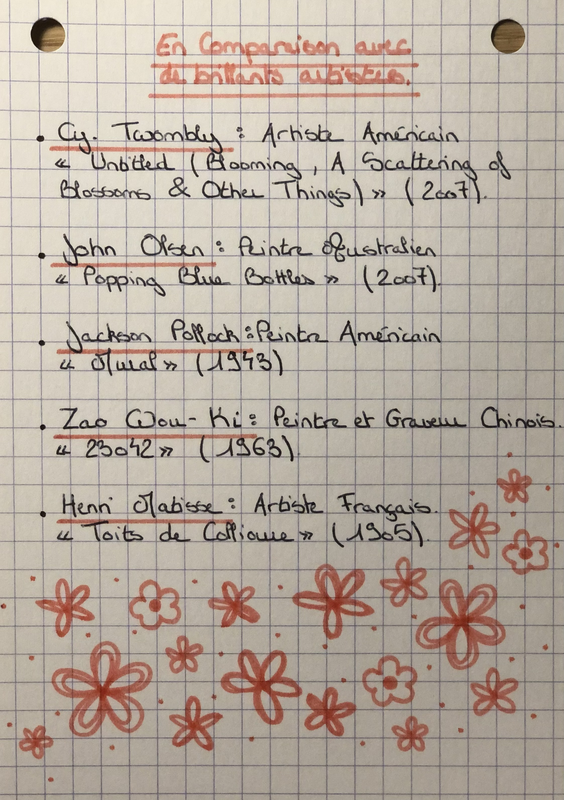 En Comparaison avec
de brillants artistes.
• Cy. Twombly : Artiste Américain
« Untitled ( Blooming , A Scattering of
Blossoms & Other Things) » ( 2007).
• John Olsen : Peintre Australien
« Popping Blue Bottles » (2007).
• Jackson Pollock : Peintre Américain
« Mural » (1943)
• Zao Wou-Ki : Peintre et Graveur Chinois.
« 23042 » (1963).
• Henri Matisse : Artiste Français.
« Toits de Collioure » (1905).